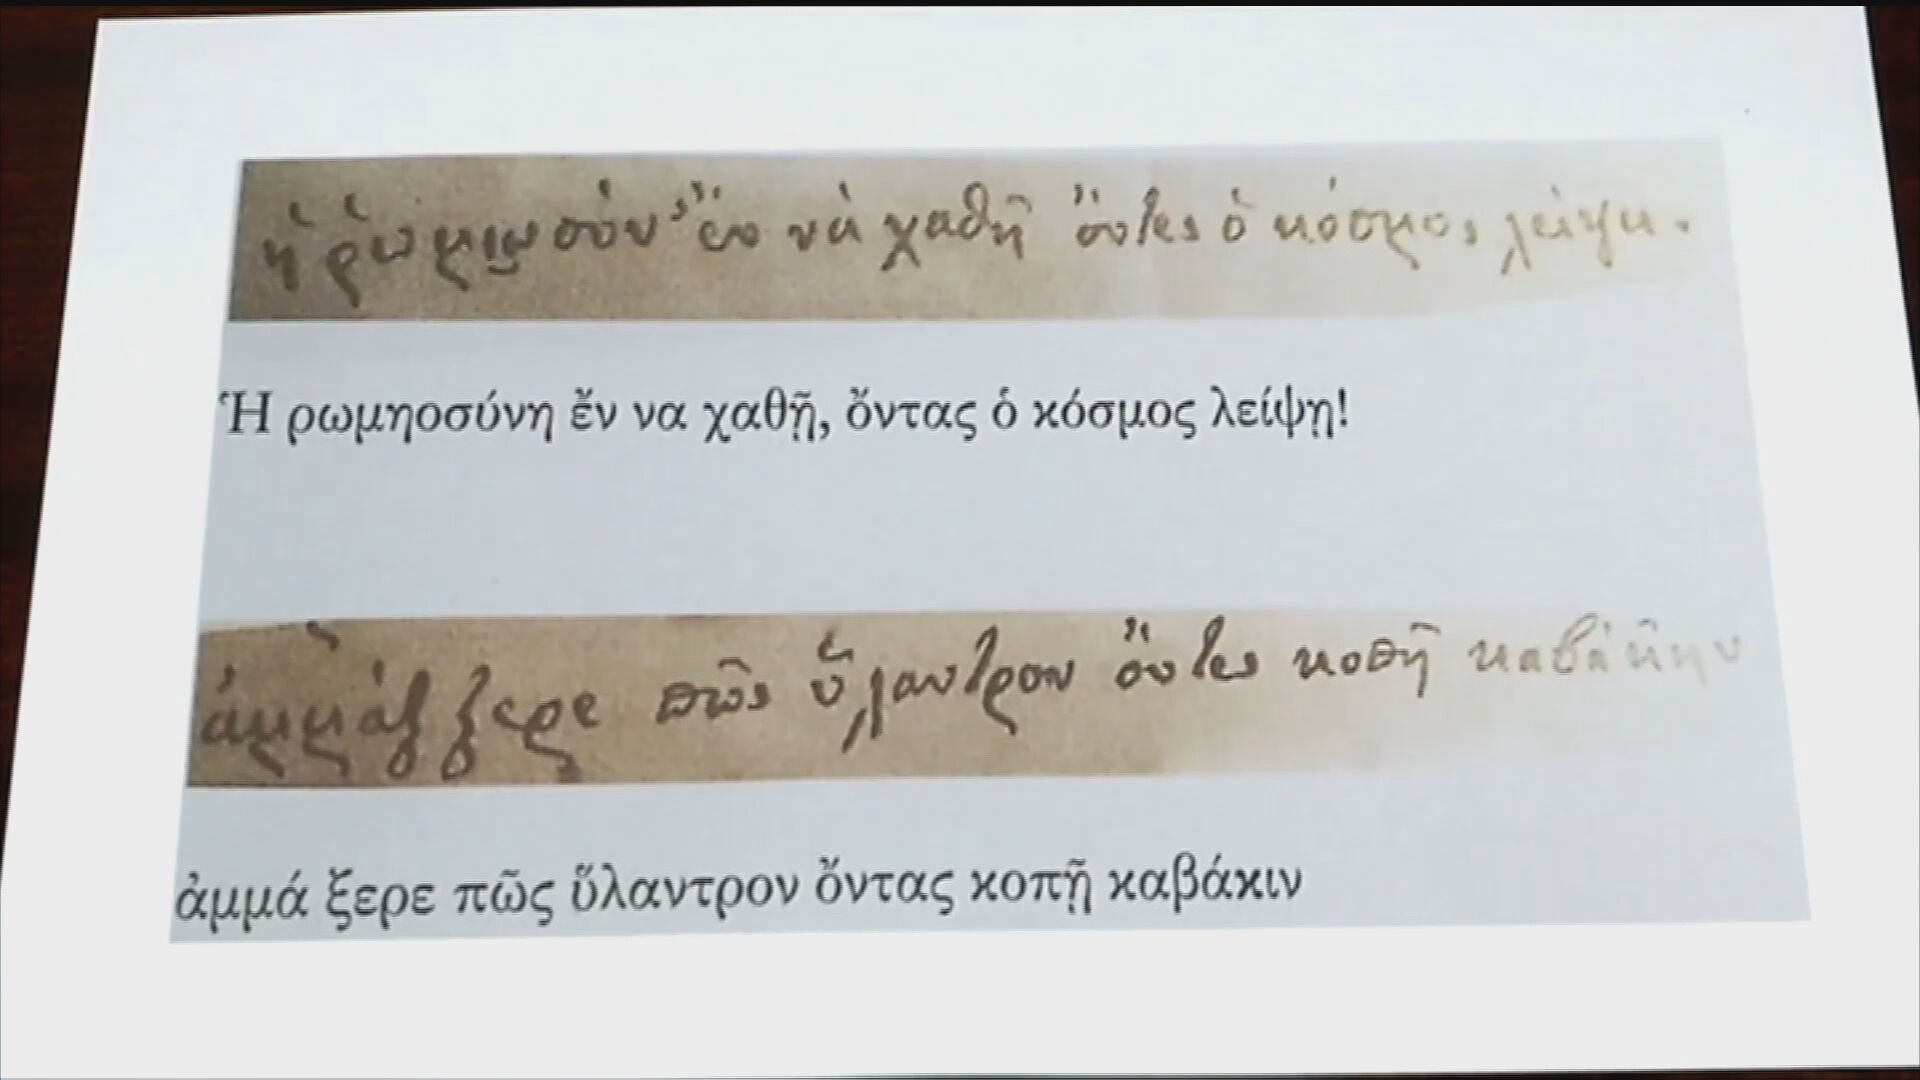 ἡ ῥωμιοσύν' ἔν νὰ χαθῆ ὄντες ὁ κόσμος λείψει.
Ἡ ρωμηοσύνη ἔν να χαθῇ, ὄντας ὁ κόσμος λείψῃ!
ξερε πῶς ὕλαντρον ὄντες κοπῆ καβάκιην
ἀμμά ξερε πῶς ὕλαντρον ὄντας κοπῇ καβάκιν